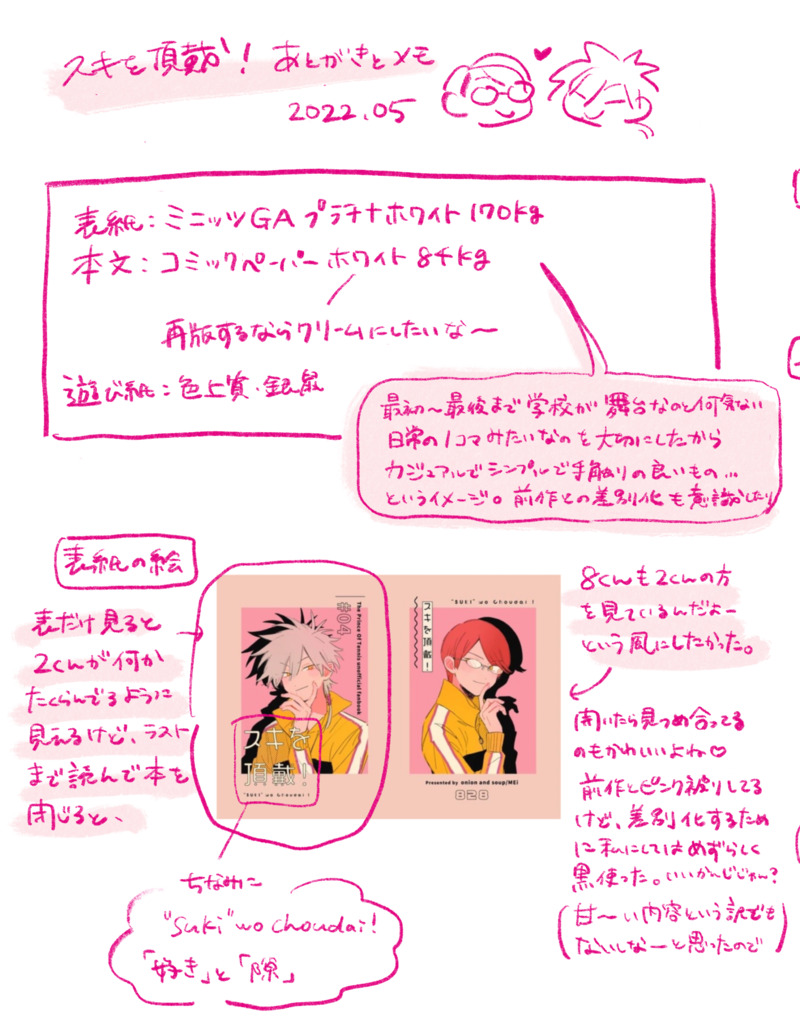 スキを頂戴!あとがきとメモ
2022.05
表紙:ミニッツGA プラチナホワイト 170kg
本文:コミックペーパー ホワイト 84kg
再版するならクリームにしたいな〜
遊び紙:色上質・銀鼠
最初〜最後まで学校が舞台なのと何気ない
日常の1コマみたいなのを大切にしたから
カジュアルでシンプルで手触りの良いもの…
というイメージ。前作との差別化も意識したり
表紙の絵
表だけ見ると
2くんが何か
たくらんでるように
見えるけど、ラスト
まで読んで本を
閉じると、
#04
The Prince Of Tennis unofficial fanbook
スキを
頂戴!
"SUKI" wo Choudai!
"SUKI" wo Choudai!
スキを頂戴!
Presented by onion and soup/MEI
828
8くんも2くんの方
を見ているんだよー
という風にしたかった。
開いたら見つめ合ってる
のもかわいいよね♡
前作とピンク被りしてる
けど、差別化するため
に私にしてはめずらしく
黒使った。いいかんじじゃん?
(甘〜い内容という訳でも
ないしなーと思ったので)
ちなみに
"Suki" wo choudai!
「好き」と「隙」